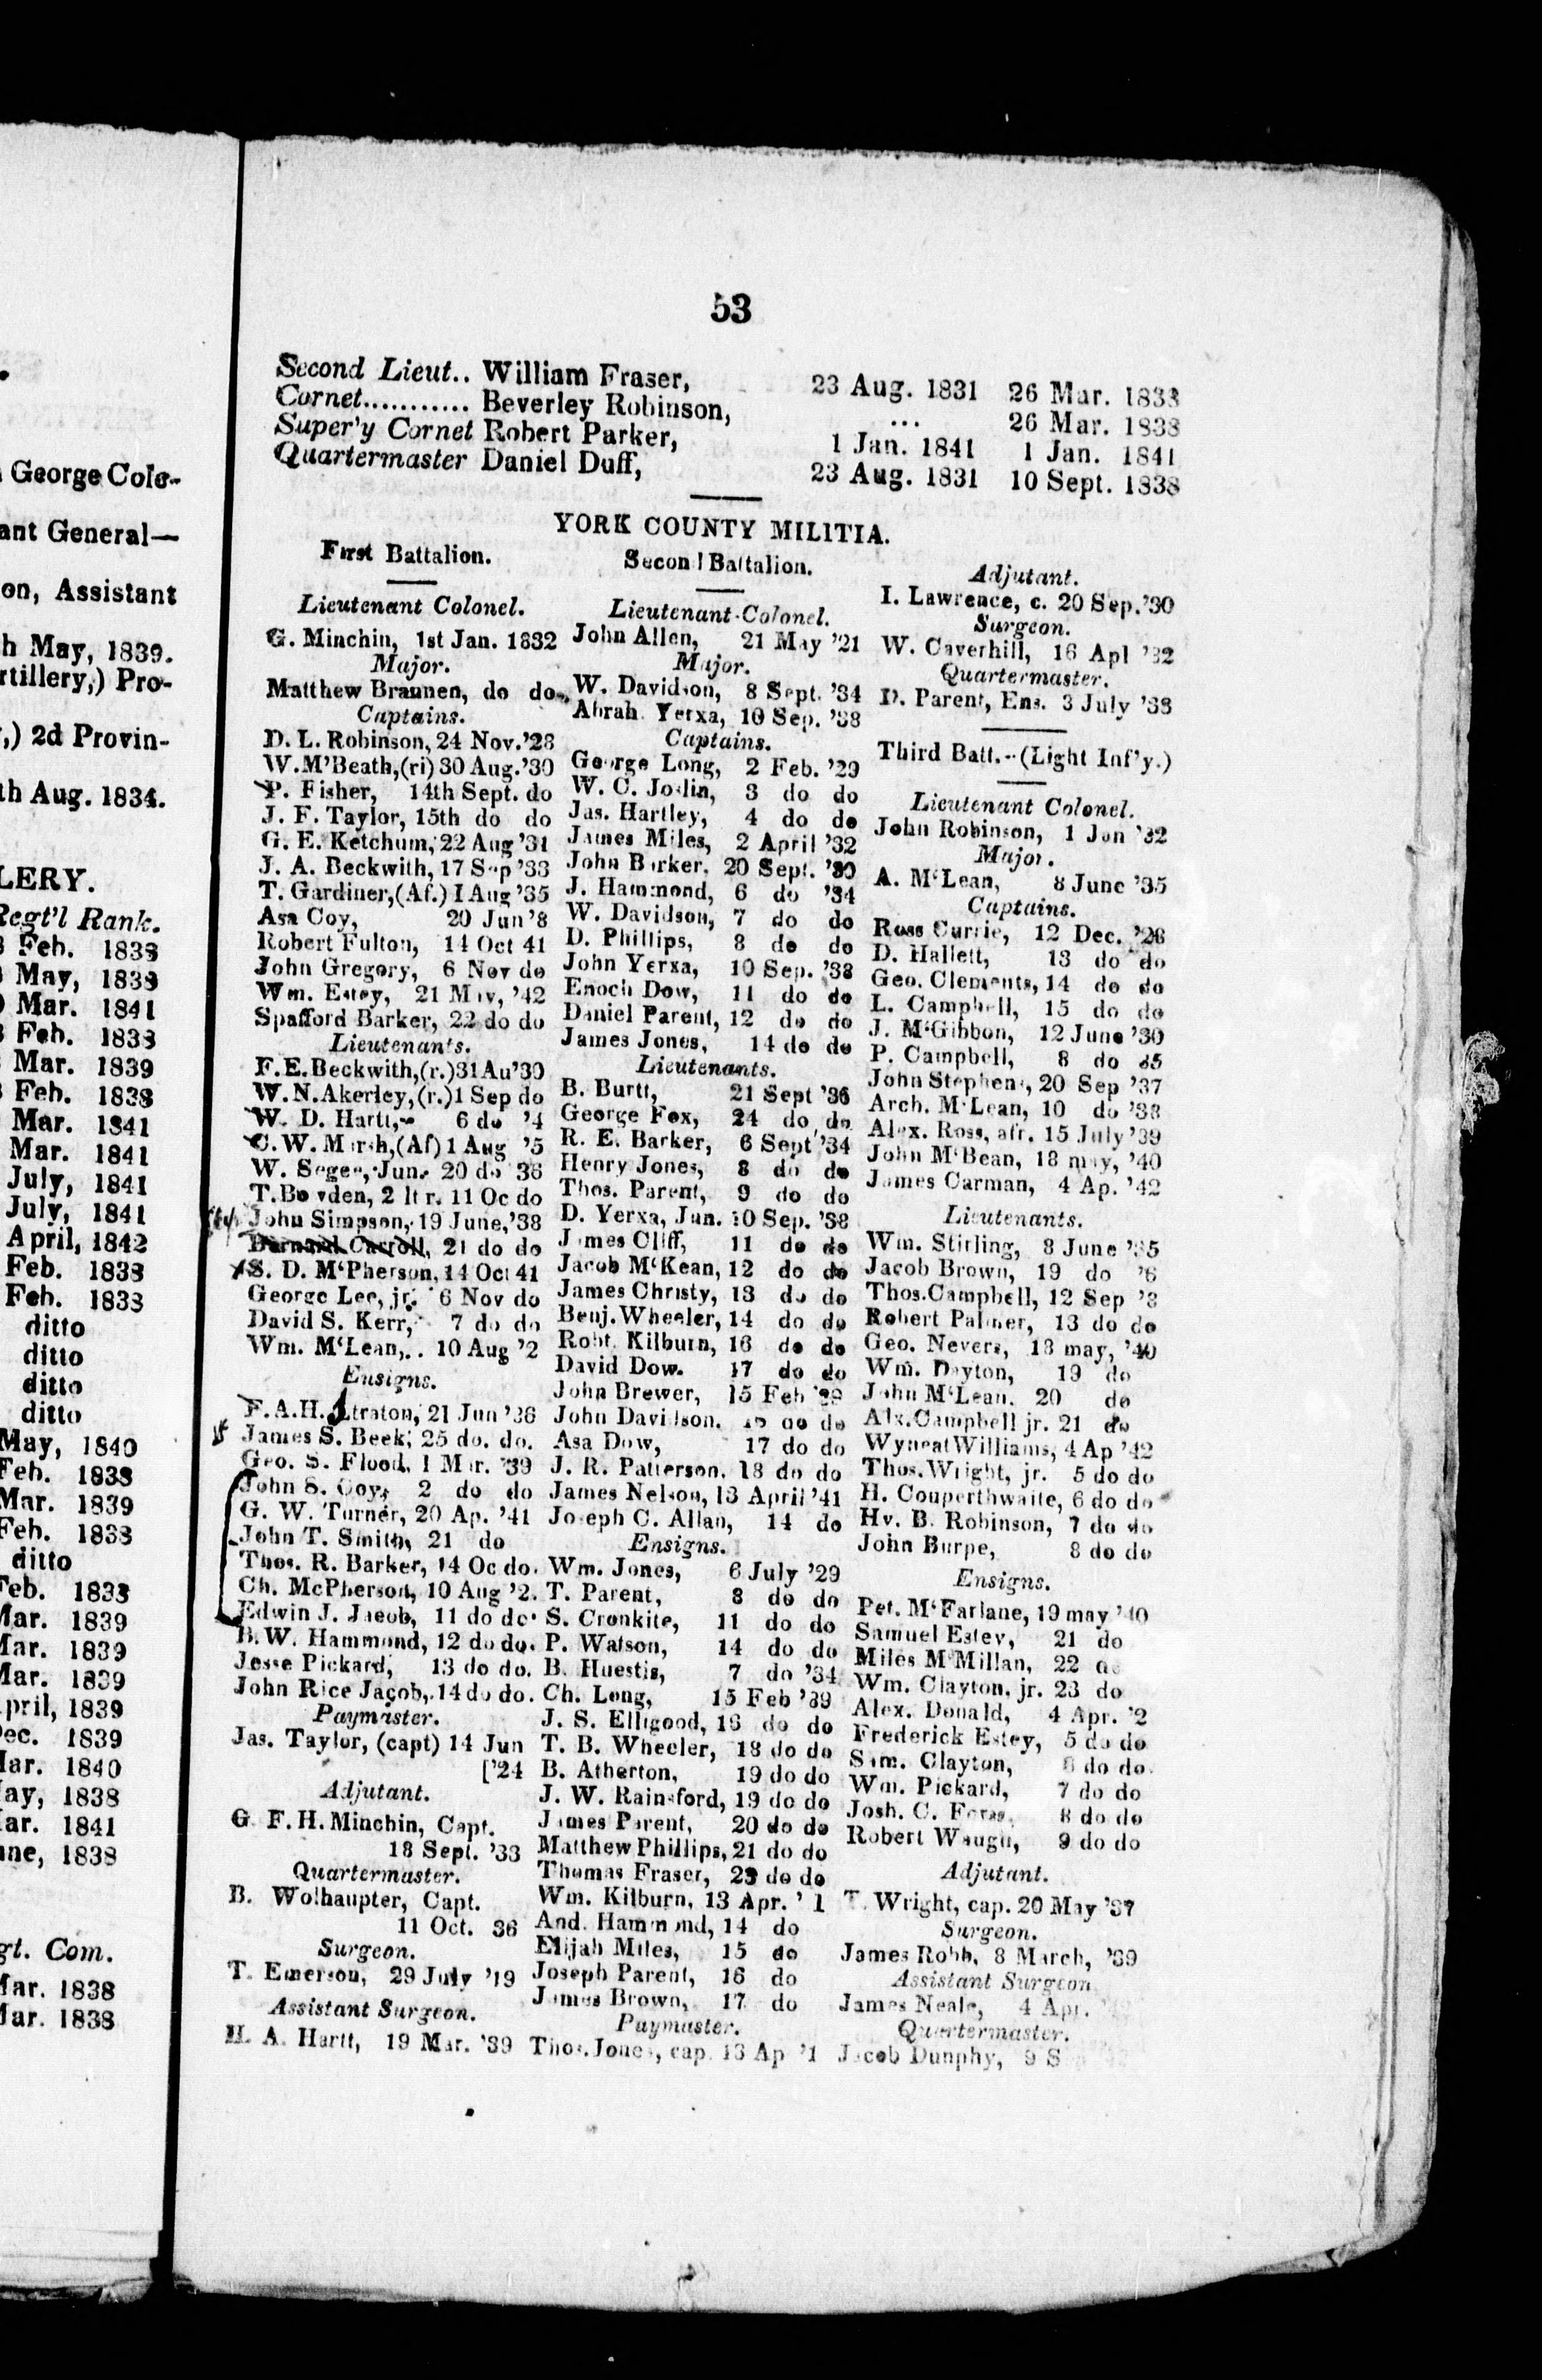 George Cole-
ant General—
on, Assistant
h May, 1839.
rtillery,) Pro-
,) 2d Provin-
th Aug. 1834.
LERY.
Regt'l Rank.
Feb. 1838
May, 1839
Mar. 1841
Feb. 1838
Mar. 1839
Feb. 1838
Mar. 1841
Mar. 1841
July, 1841
July, 1841
April, 1842
Feb. 1838
Feb. 1838
ditto
ditto
ditto
ditto
May, 1840
Feb. 1838
Mar. 1839
Feb. 1838
ditto
Feb. 1838
Mar. 1839
Mar. 1839
Mar. 1839
pril, 1839
ec. 1839
ar. 1840
ay, 1838
ar. 1841
ne, 1838
gt. Com.
Mar. 1838
Mar. 1838
53
Second Lieut.. William Fraser, 23 Aug. 1831 26 Mar. 1838
Cornet........... Beverley Robinson, ... 26 Mar. 1838
Super'y Cornet Robert Parker, 1 Jan. 1841 1 Jan. 1841
Quartermaster Daniel Duff, 23 Aug. 1831 10 Sept. 1838
YORK COUNTY MILITIA.
First Battalion.
Lieutenant Colonel.
G. Minchin, 1st Jan. 1832
Major.
Matthew Brannen, do do
Captains.
D. L. Robinson, 24 Nov.'28
W.M'Beath,(ri) 30 Aug.'30
P. Fisher, 14th Sept. do
J. F. Taylor, 15th do do
G. E. Ketchum, 22 Aug '31
J. A. Beckwith, 17 Sep '33
T. Gardiner,(Af.) 1 Aug '35
Asa Coy, 20 Jun '8
Robert Fulton, 14 Oct 41
John Gregory, 6 Nov do
Wm. Estey, 21 May, '42
Spafford Barker, 22 do do
Lieutenants.
F.E.Beckwith,(r.)31Au'30
W.N.Akerley,(r.)1 Sep do
W. D. Hartt, 6 do '4
C.W. Marsh,(Af) 1 Aug '5
W. Segee, Jun. 20 do 36
T.Bowden, 2 lt r. 11 Oc do
John Simpson, 19 June,'38
Barnard Carroll, 21 do do
S. D. M'Pherson, 14 Oct 41
George Lee, jr. 6 Nov do
David S. Kerr, 7 do do
Wm. M'Lean,.. 10 Aug '2
Ensigns.
F.A.H. Straton, 21 Jun '36
James S. Beek, 25 do. do.
Geo. S. Flood, 1 Mar. '39
John S. Coy, 2 do do
G. W. Turner, 20 Ap. '41
John T. Smith, 21 do
Thos. R. Barker, 14 Oc do.
Ch. McPherson, 10 Aug '2.
Edwin J. Jacob, 11 do do
B.W. Hammond, 12 do do.
Jesse Pickard, 13 do do.
John Rice Jacob, 14 do do.
Paymaster.
Jas. Taylor, (capt) 14 Jun
['24
Adjutant.
G. F.H. Minchin, Capt.
18 Sept. '33
Quartermaster.
B. Wolhaupter, Capt.
11 Oct. 36
Surgeon.
T. Emerson, 29 July '19
Assistant Surgeon.
H. A. Hartt, 19 Mar. '39
Second Battalion.
Lieutenant-Colonel.
John Allen, 21 May '21
Major.
W. Davidson, 8 Sept. '34
Abrah. Yerxa, 10 Sep. '38
Captains.
George Long, 2 Feb. '29
W. C. Joslin, 3 do do
Jas. Hartley, 4 do do
James Miles, 2 April '32
John Barker, 20 Sept. '30
J. Hammond, 6 do '34
W. Davidson, 7 do do
D. Phillips, 8 do do
John Yerxa, 10 Sep. '38
Enoch Dow, 11 do do
Daniel Parent, 12 do do
James Jones, 14 do do
Lieutenants.
B. Burtt, 21 Sept '36
George Fox, 24 do do
R. E. Barker, 6 Sept '34
Henry Jones, 8 do do
Thos. Parent, 9 do do
D. Yerxa, Jun. 10 Sep. '38
James Cliff, 11 do do
Jacob M'Kean, 12 do do
James Christy, 13 do do
Benj. Wheeler, 14 do do
Robt. Kilburn, 16 do do
David Dow. 17 do do
John Brewer, 15 Feb '39
John Davidson. do do
Asa Dow, 17 do do
J. R. Patterson, 18 do do
James Nelson, 13 April '41
Joseph C. Allan, 14 do
Ensigns.
Wm. Jones, 6 July '29
T. Parent, 8 do do
S. Cronkite, 11 do do
P. Watson, 14 do do
B. Huestis, 7 do '34
Ch. Long, 15 Feb '39
J. S. Elligood, 16 do do
T. B. Wheeler, 18 do do
B. Atherton, 19 do do
J. W. Rainsford, 19 do do
James Parent, 20 do do
Matthew Phillips, 21 do do
Thomas Fraser, 23 do do
Wm. Kilburn, 13 Apr. ' 1
And. Hammond, 14 do
Elijah Miles, 15 do
Joseph Parent, 16 do
James Brown, 17 do
Paymaster.
Thos. Jones, cap. 13 Ap '1
Adjutant.
I. Lawrence, c. 20 Sep.'30
Surgeon.
W. Caverhill, 16 Apl '32
Quartermaster.
D. Parent, Ens. 3 July '38
Third Batt.--(Light Inf'y.)
Lieutenant Colonel.
John Robinson, 1 Jan '32
Major.
A. M'Lean, 8 June '35
Captains.
Ross Currie, 12 Dec. '26
D. Hallett, 13 do do
Geo. Clements, 14 do do
L. Campbell, 15 do do
J. M'Gibbon, 12 June '30
P. Campbell, 8 do 35
John Stephens, 20 Sep '37
Arch. M'Lean, 10 do '38
Alex. Ross, afr. 15 July '39
John M'Bean, 18 may, '40
James Carman, 4 Ap. '42
Lieutenants.
Wm. Stirling, 8 June '35
Jacob Brown, 19 do '6
Thos.Campbell, 12 Sep '8
Robert Palmer, 13 do do
Geo. Nevers, 18 may, '40
Wm. Dayton, 19 do
John M'Lean. 20 do
Alx.Campbell jr. 21 do
Wyneat Williams, 4 Ap '42
Thos. Wright, jr. 5 do do
H. Couperthwaite, 6 do do
Hy. B. Robinson, 7 do do
John Burpe, 8 do do
Ensigns.
Pet. M'Farlane, 19 may '40
Samuel Estey, 21 do
Miles M'Millan, 22
Wm. Clayton, jr. 23 do
Alex. Donald, 4 Apr. '2
Frederick Estey, 5 do do
Sam. Clayton, 6 do do.
Wm. Pickard, 7 do do
Josh. C. 8 do do
Robert Waugh, 9 do do
Adjutant.
T. Wright, cap. 20 May '37
Surgeon.
James Robb, 8 March, '39
Assistant Surgeon
James Neale, 4 Apr.
Quartermaster.
Jacob Dunphy, 9 S